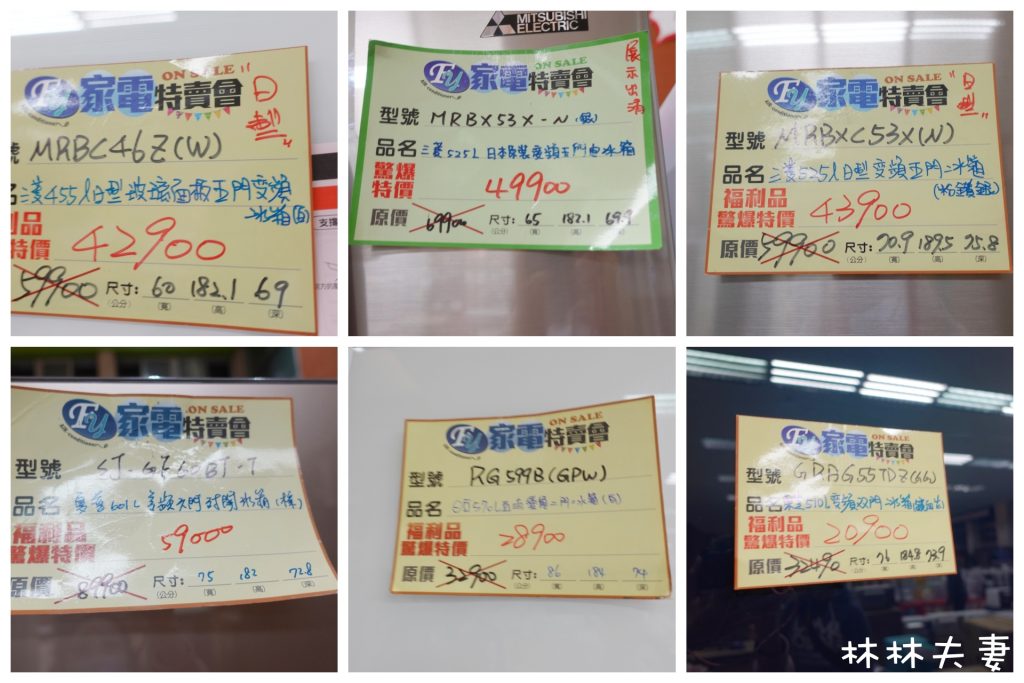 ON SALE
FU 家電特賣會
Air conditioner
"日
號 MRBC46Z(W)
三菱455l日型玻璃面板五門變頻
冰箱(白)
利品
特價 42900
59900 尺寸: 60 182.1 69
(公分) (寬) (高) (深)
支撐
MITSUBISHI
ELECTRIC
展示出清
ON SALE
FU 家電特賣會
型號 MRBX53X-N(銀)
品名 三菱525L日本原裝變頻五門電冰箱
驚爆
特價 49900
原價 69900 尺寸: 65 182.1 69.9
(公分) (寬) (高) (深)
ON SALE
FU 家電特賣會
"日型"
型號 MRBXC53X(N)
品名 三菱525l日型變頻五門冰箱
福利品
驚爆特價 43900
原價 59900 尺寸: 70.9 189.5 75.8
(公分) (寬) (高) (深)
ON SALE
FU 家電特賣會
Air conditioner
型號 SJ-GF60BT-T
品名 601L變頻六門對開冰箱(棕)
福利品
驚爆特價 59000
原價 89900 尺寸: 75 182 72.8
(公分) (寬) (高) (深)
ON SALE
FU 家電特賣會
型號 RG599B(GPW)
品名 日立570L變頻二門冰箱(白)
福利品
驚爆特價 28900
原價 32900 尺寸: 86 184 74
(公分) (寬) (高) (深)
ON SALE
FU 家電特賣會
型號 GRAG55TDZ(GG)
品名 東芝510L變頻双門冰箱
福利品
驚爆特價 20900
原價 32490 尺寸: 76 184.8 73.9
(公分) (寬) (高) (深)
林林夫妻